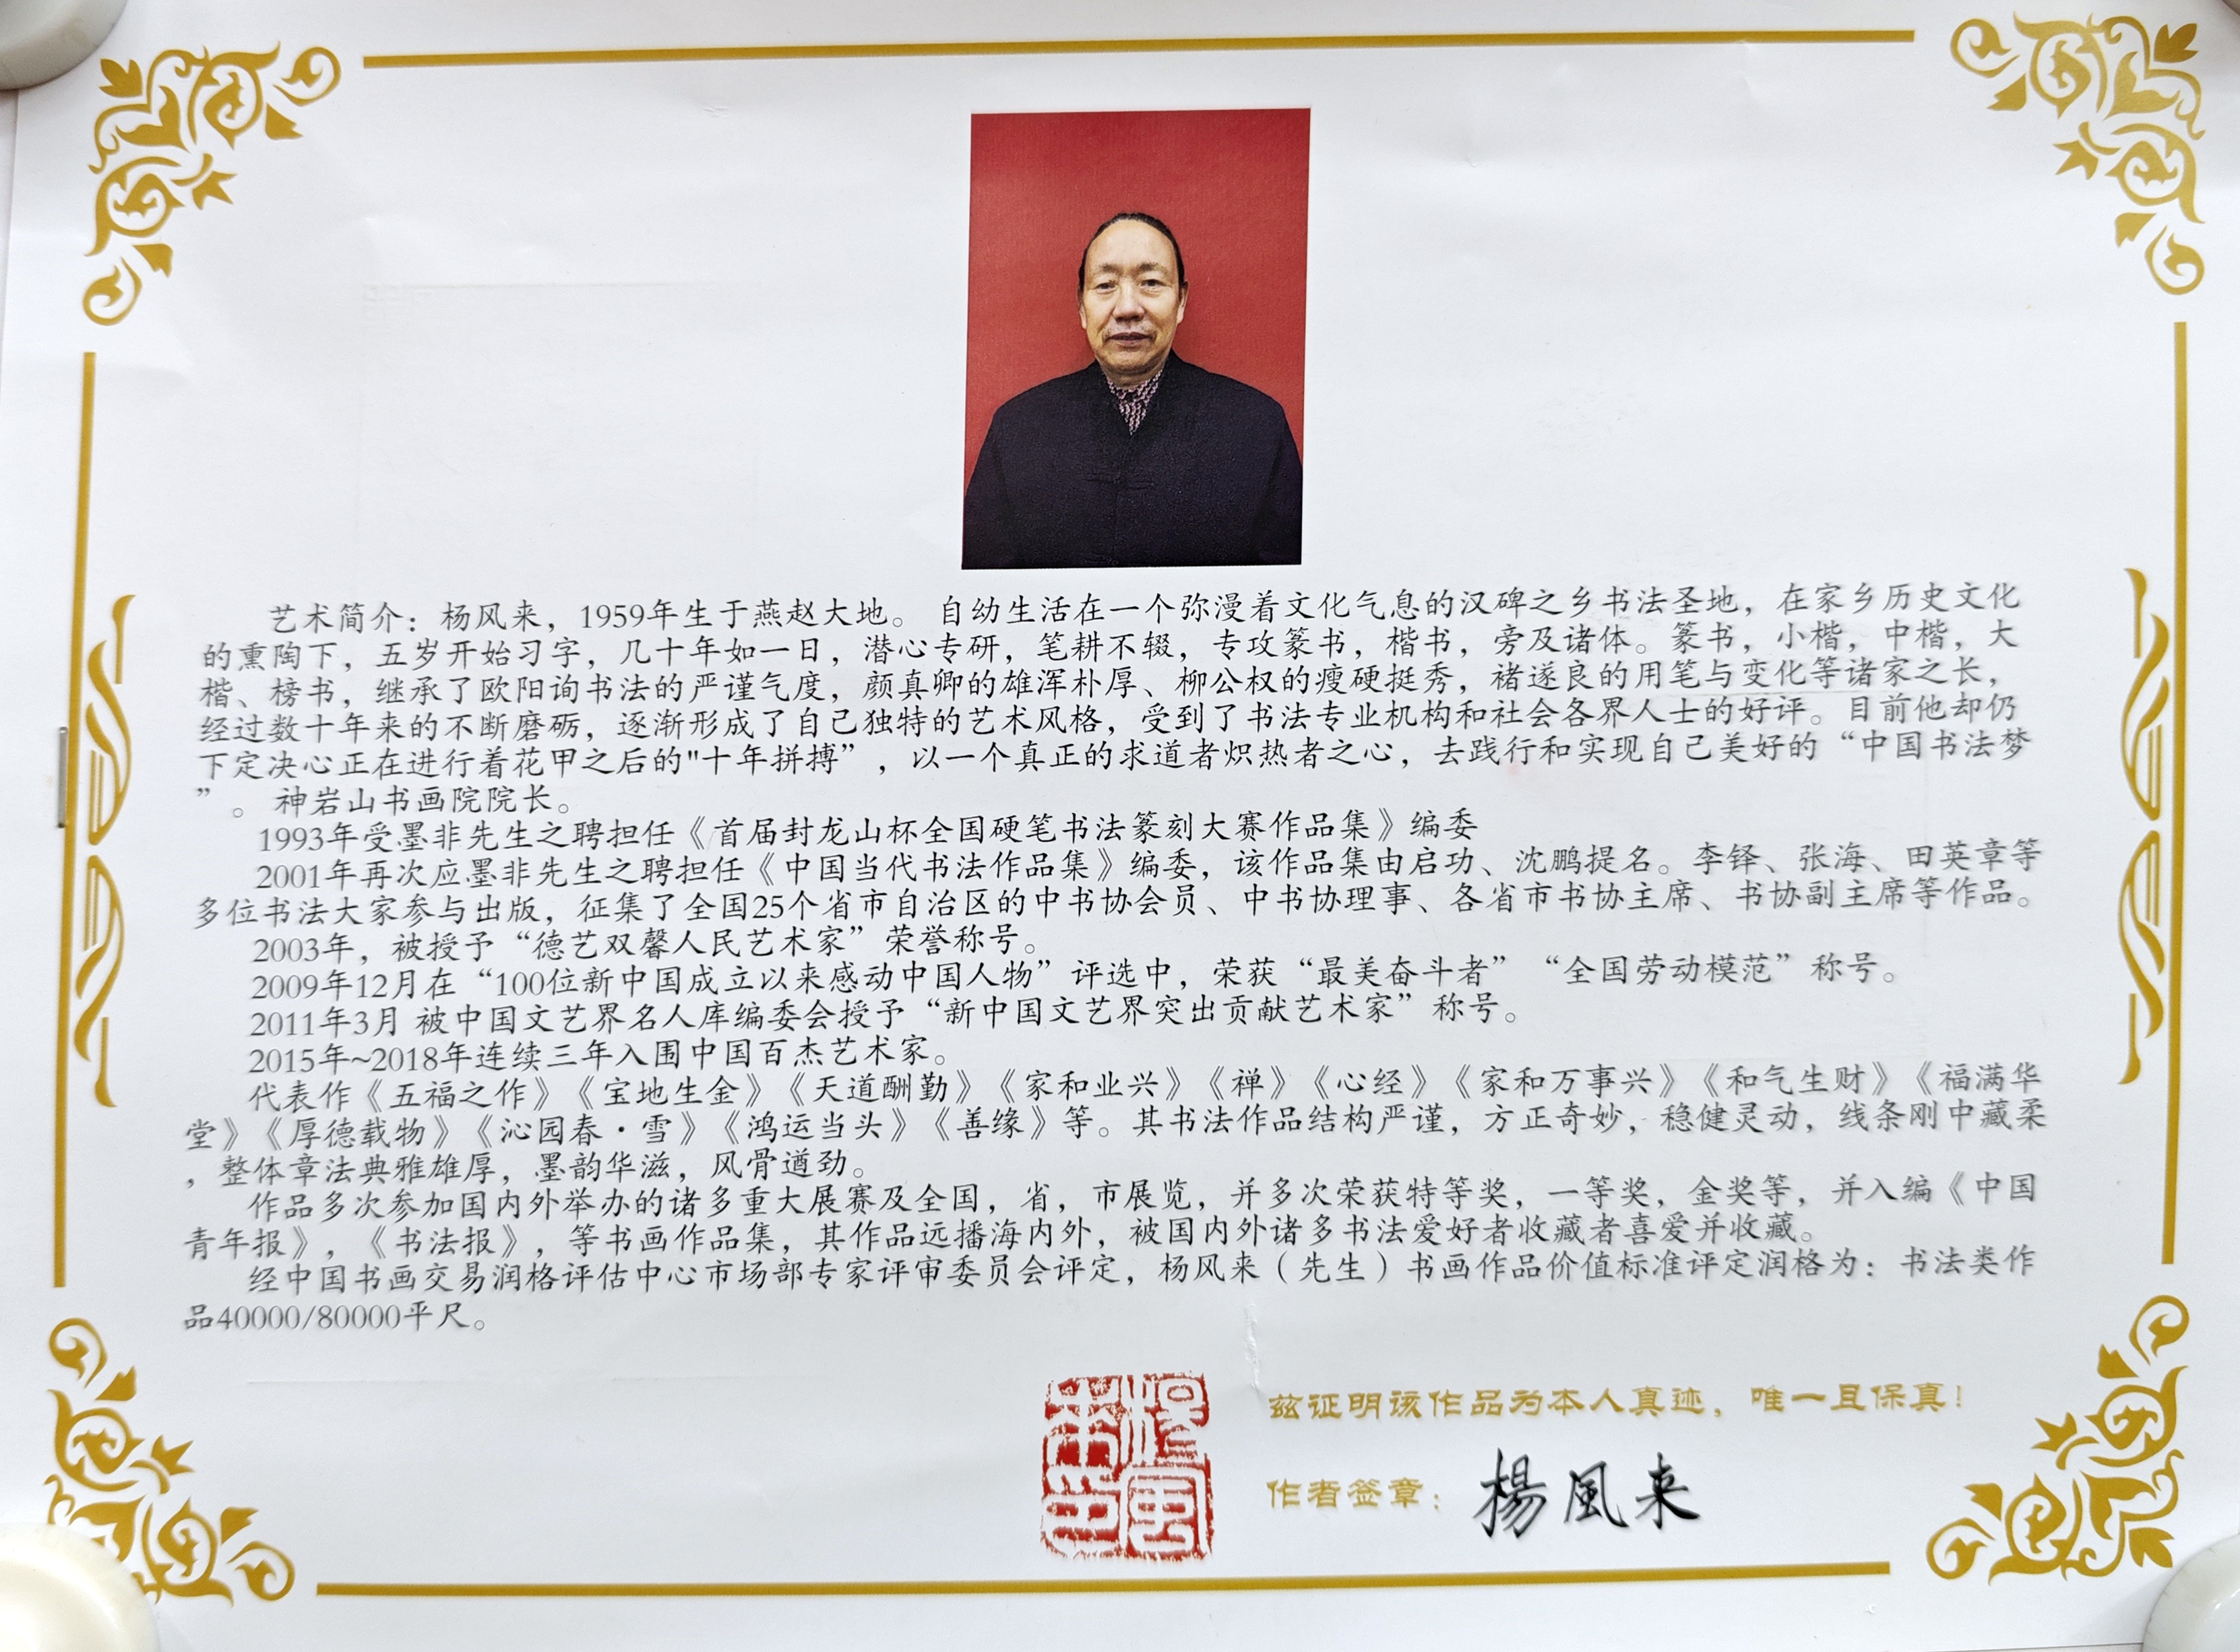 艺术简介：杨风来，1959年生于燕赵大地。 自幼生活在一个弥漫着文化气息的汉碑之乡书法圣地，在家乡历史文化
的熏陶下，五岁开始习字，几十年如一日，潜心专研，笔耕不辍，专攻篆书，楷书，旁及诸体。篆书，小楷，中楷，大
楷、榜书，继承了欧阳询书法的严谨气度，颜真卿的雄浑朴厚、柳公权的瘦硬挺秀，褚遂良的用笔与变化等诸家之长，
经过数十年来的不断磨砺，逐渐形成了自己独特的艺术风格，受到了书法专业机构和社会各界人士的好评。目前他却仍
下定决心正在进行着花甲之后的"十年拼搏”，以一个真正的求道者炽热者之心，去践行和实现自己美好的“中国书法梦
”。 神岩山书画院院长。
1993年受墨非先生之聘担任《首届封龙山杯全国硬笔书法篆刻大赛作品集》编委
2001年再次应墨非先生之聘担任《中国当代书法作品集》编委，该作品集由启功、沈鹏提名。李铎、张海、田英章等
多位书法大家参与出版，征集了全国25个省市自治区的中书协会员、中书协理事、各省市书协主席、书协副主席等作品。
2003年，被授予“德艺双馨人民艺术家”荣誉称号。
2009年12月在“100位新中国成立以来感动中国人物”评选中，荣获“最美奋斗者”“全国劳动模范”称号。
2011年3月 被中国文艺界名人库编委会授予“新中国文艺界突出贡献艺术家”称号。
2015年~2018年连续三年入围中国百杰艺术家。
代表作《五福之作》《宝地生金》《天道酬勤》《家和业兴》《禅》《心经》《家和万事兴》《和气生财》《福满华
堂》《厚德载物》《沁园春·雪》《鸿运当头》《善缘》等。其书法作品结构严谨，方正奇妙，稳健灵动，线条刚中藏柔
，整体章法典雅雄厚，墨韵华滋，风骨遒劲。
作品多次参加国内外举办的诸多重大展赛及全国，省，市展览，并多次荣获特等奖，一等奖，金奖等，并入编《中国
青年报》，《书法报》，等书画作品集，其作品远播海内外，被国内外诸多书法爱好者收藏者喜爱并收藏。
经中国书画交易润格评估中心市场部专家评审委员会评定，杨风来（先生）书画作品价值标准评定润格为：书法类作
品40000/80000平尺。
兹证明该作品为本人真迹，唯一且保真！
作者签章：楊風来
楊風来印